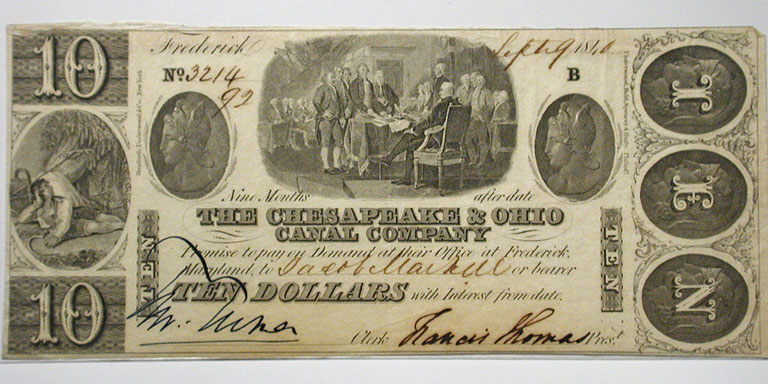 10
Frederick Sept 9 1840
No 3214
92
B
Nine Months after date
THE CHESAPEAKE & OHIO
CANAL COMPANY
Promise to pay on Demand at their Office at Frederick,
Maryland, to Jacob Markell or bearer
TEN DOLLARS with Interest from date.
Clerk Francis Thomas Prest
10
TEN
TEN
T
E
N